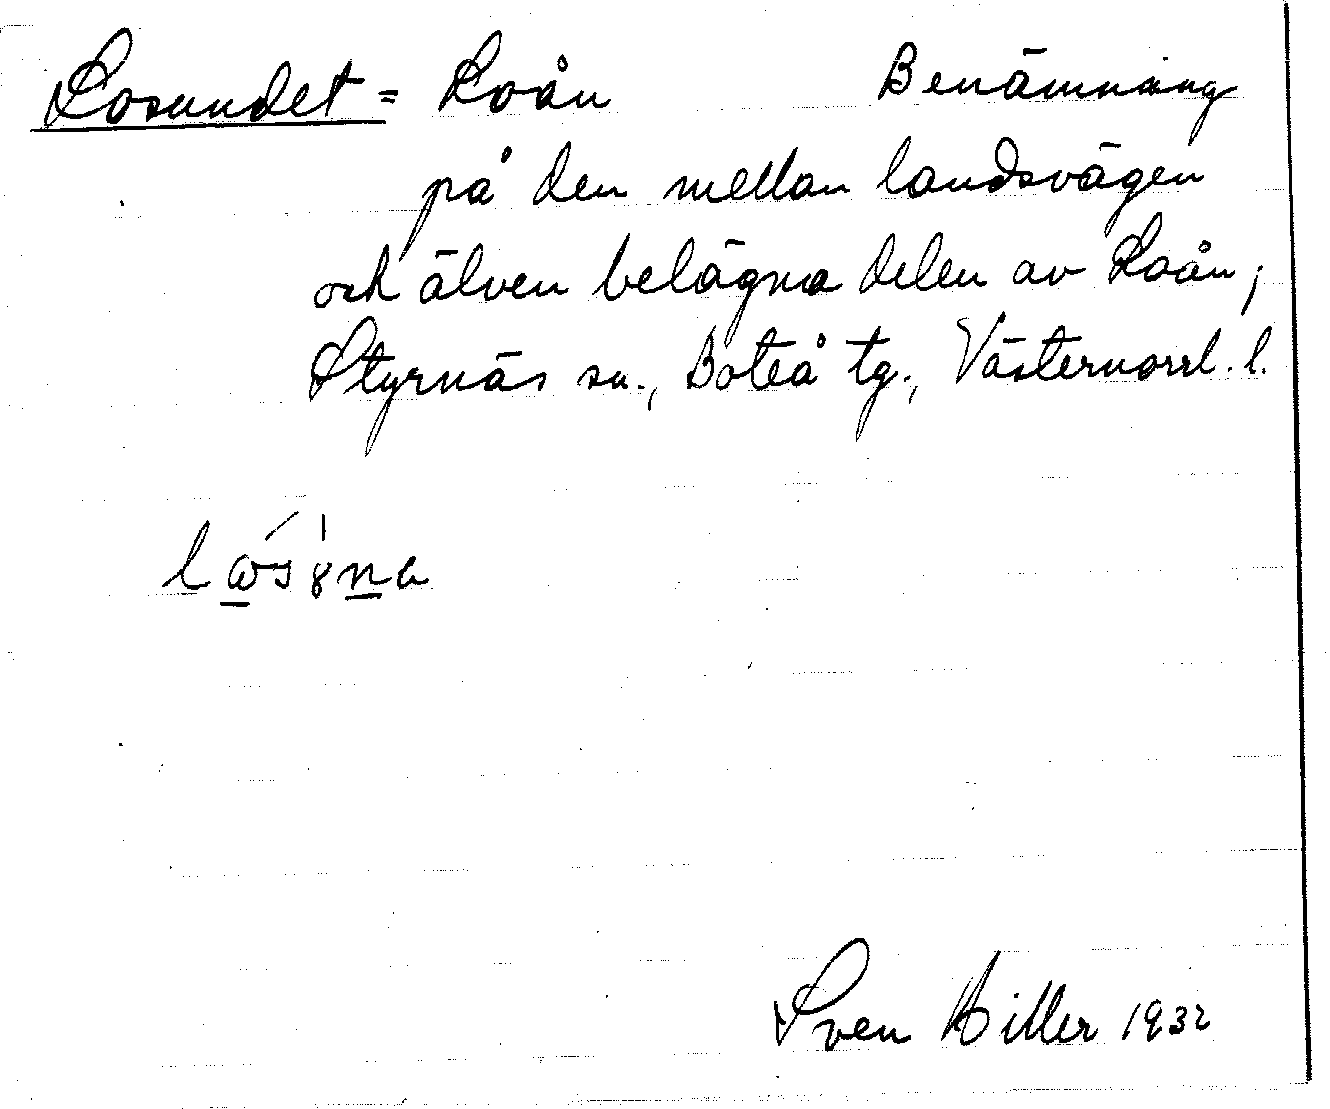 Losundet = Loån Benämning
på den mellan landsvägen
och älven belägna delen av Loån,
Styrnäs sn., Boteå tg., Västernorrl. l.
Sven Hiller 1932